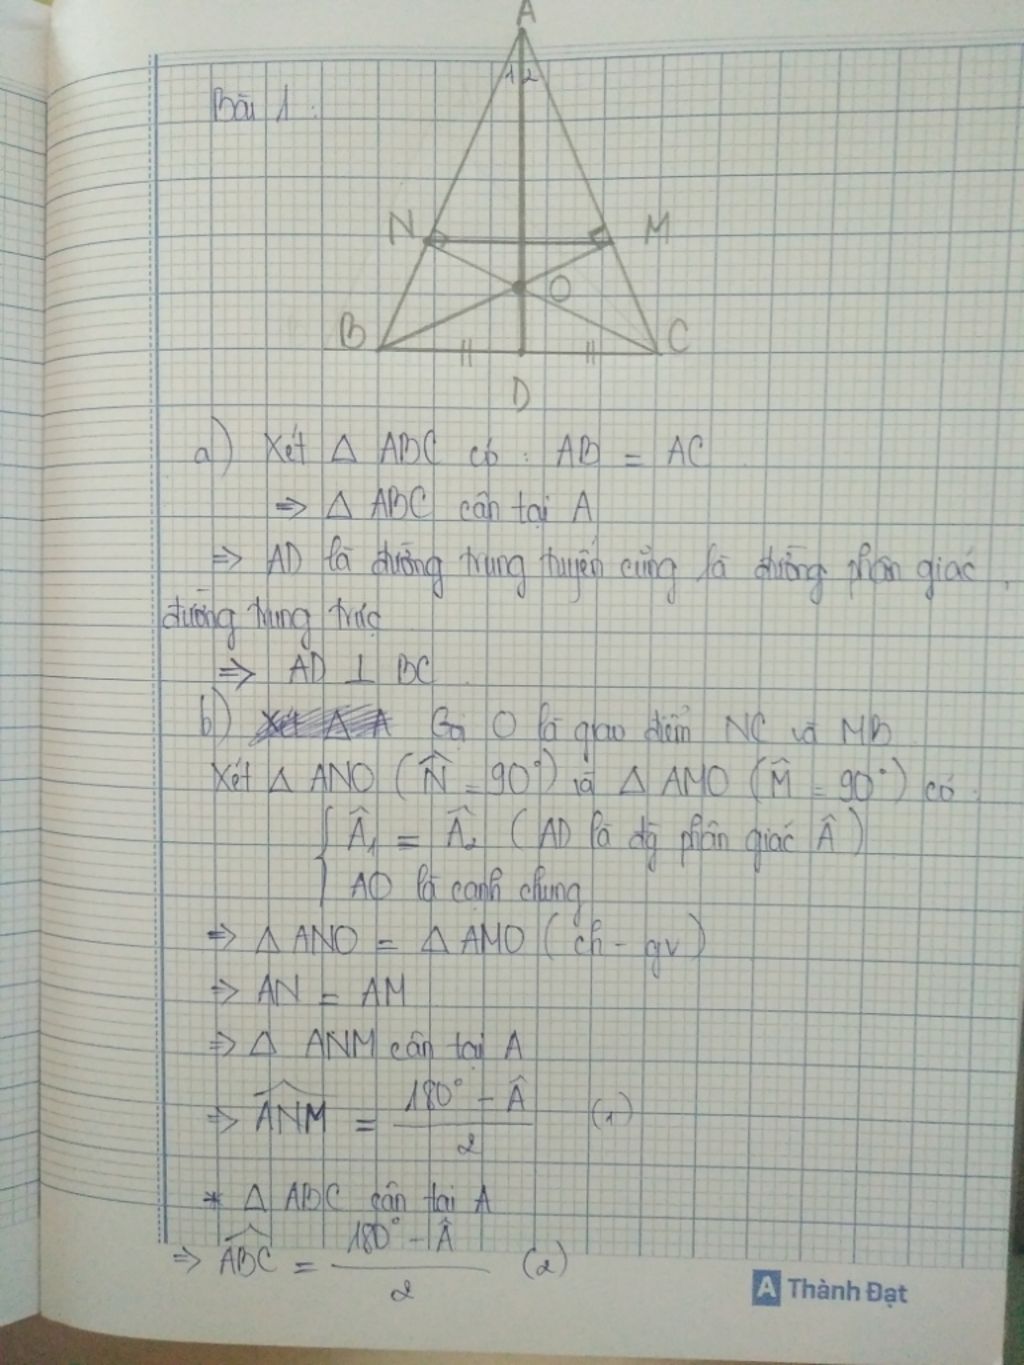 A
1 2
Bài 1:
N M
O
B C
D
a) Xét Δ ABC có: AB = AC
⇒ Δ ABC cân tại A
⇒ AD là đường trung tuyến cũng là đường phân giác,
đường trung trực
⇒ AD ⊥ BC
b) Gọi O là giao điểm NC và MB
Xét Δ ANO (N̂ = 90°) và Δ AMO (M̂ = 90°) có:
Â₁ = Â₂ (AD là đg phân giác Â)
AO là cạnh chung
⇒ Δ ANO = Δ AMO (ch - gv)
⇒ AN = AM
⇒ Δ ANM cân tại A
⇒ ANM = 180° - Â / 2 (1)
* Δ ABC cân tại A
⇒ ABC = 180° - Â / 2 (2)
A Thành Đạt